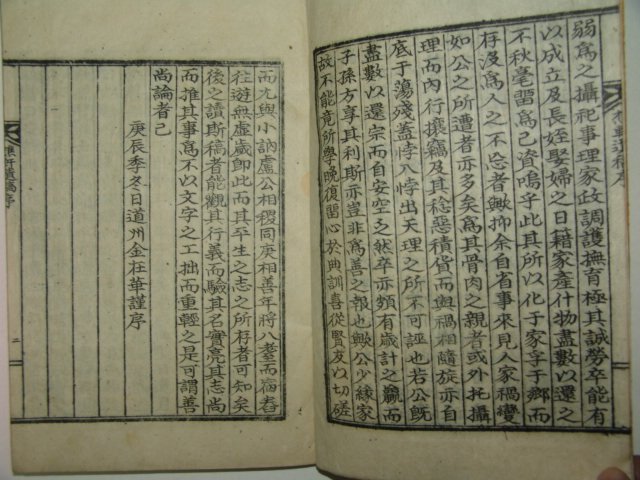 弱爲之攝祀事理家政調護撫育極其誠勞卒能有
以成立及長姪娶婦之日籍家產什物盡數以還之
不秋毫留爲己資嗚乎此其所以化于家孚于鄉而
存沒爲人之不忘者歟抑余自省事來見人家禍變
如公之所遭者亦多矣爲其骨肉之親者或外托攝
理而內行攘竊及其稔惡積貨而與禍相隨旋亦自
底于蕩殘盖悖入悖出天理之所不可誣也若公旣
盡數以還宗而自安空乏然卒亦頗有歲計之羸而
子孫方享其利斯亦豈非爲善之報也歟公少緣家
故不能竟所學晚復留心於典訓喜從賢友以切磋
而尤與小訥盧公相稷同庚相善年將八耋而源源
往遊無虛歲卽此而其平生之志之所存者可知矣
後之讀斯稿者能觀其行義而驗其名實亮其志尚
而推其事爲不以文字之工拙而重輕之是可謂善
尚論者已
庚辰季冬日道州金在華謹序
遺稿序
二